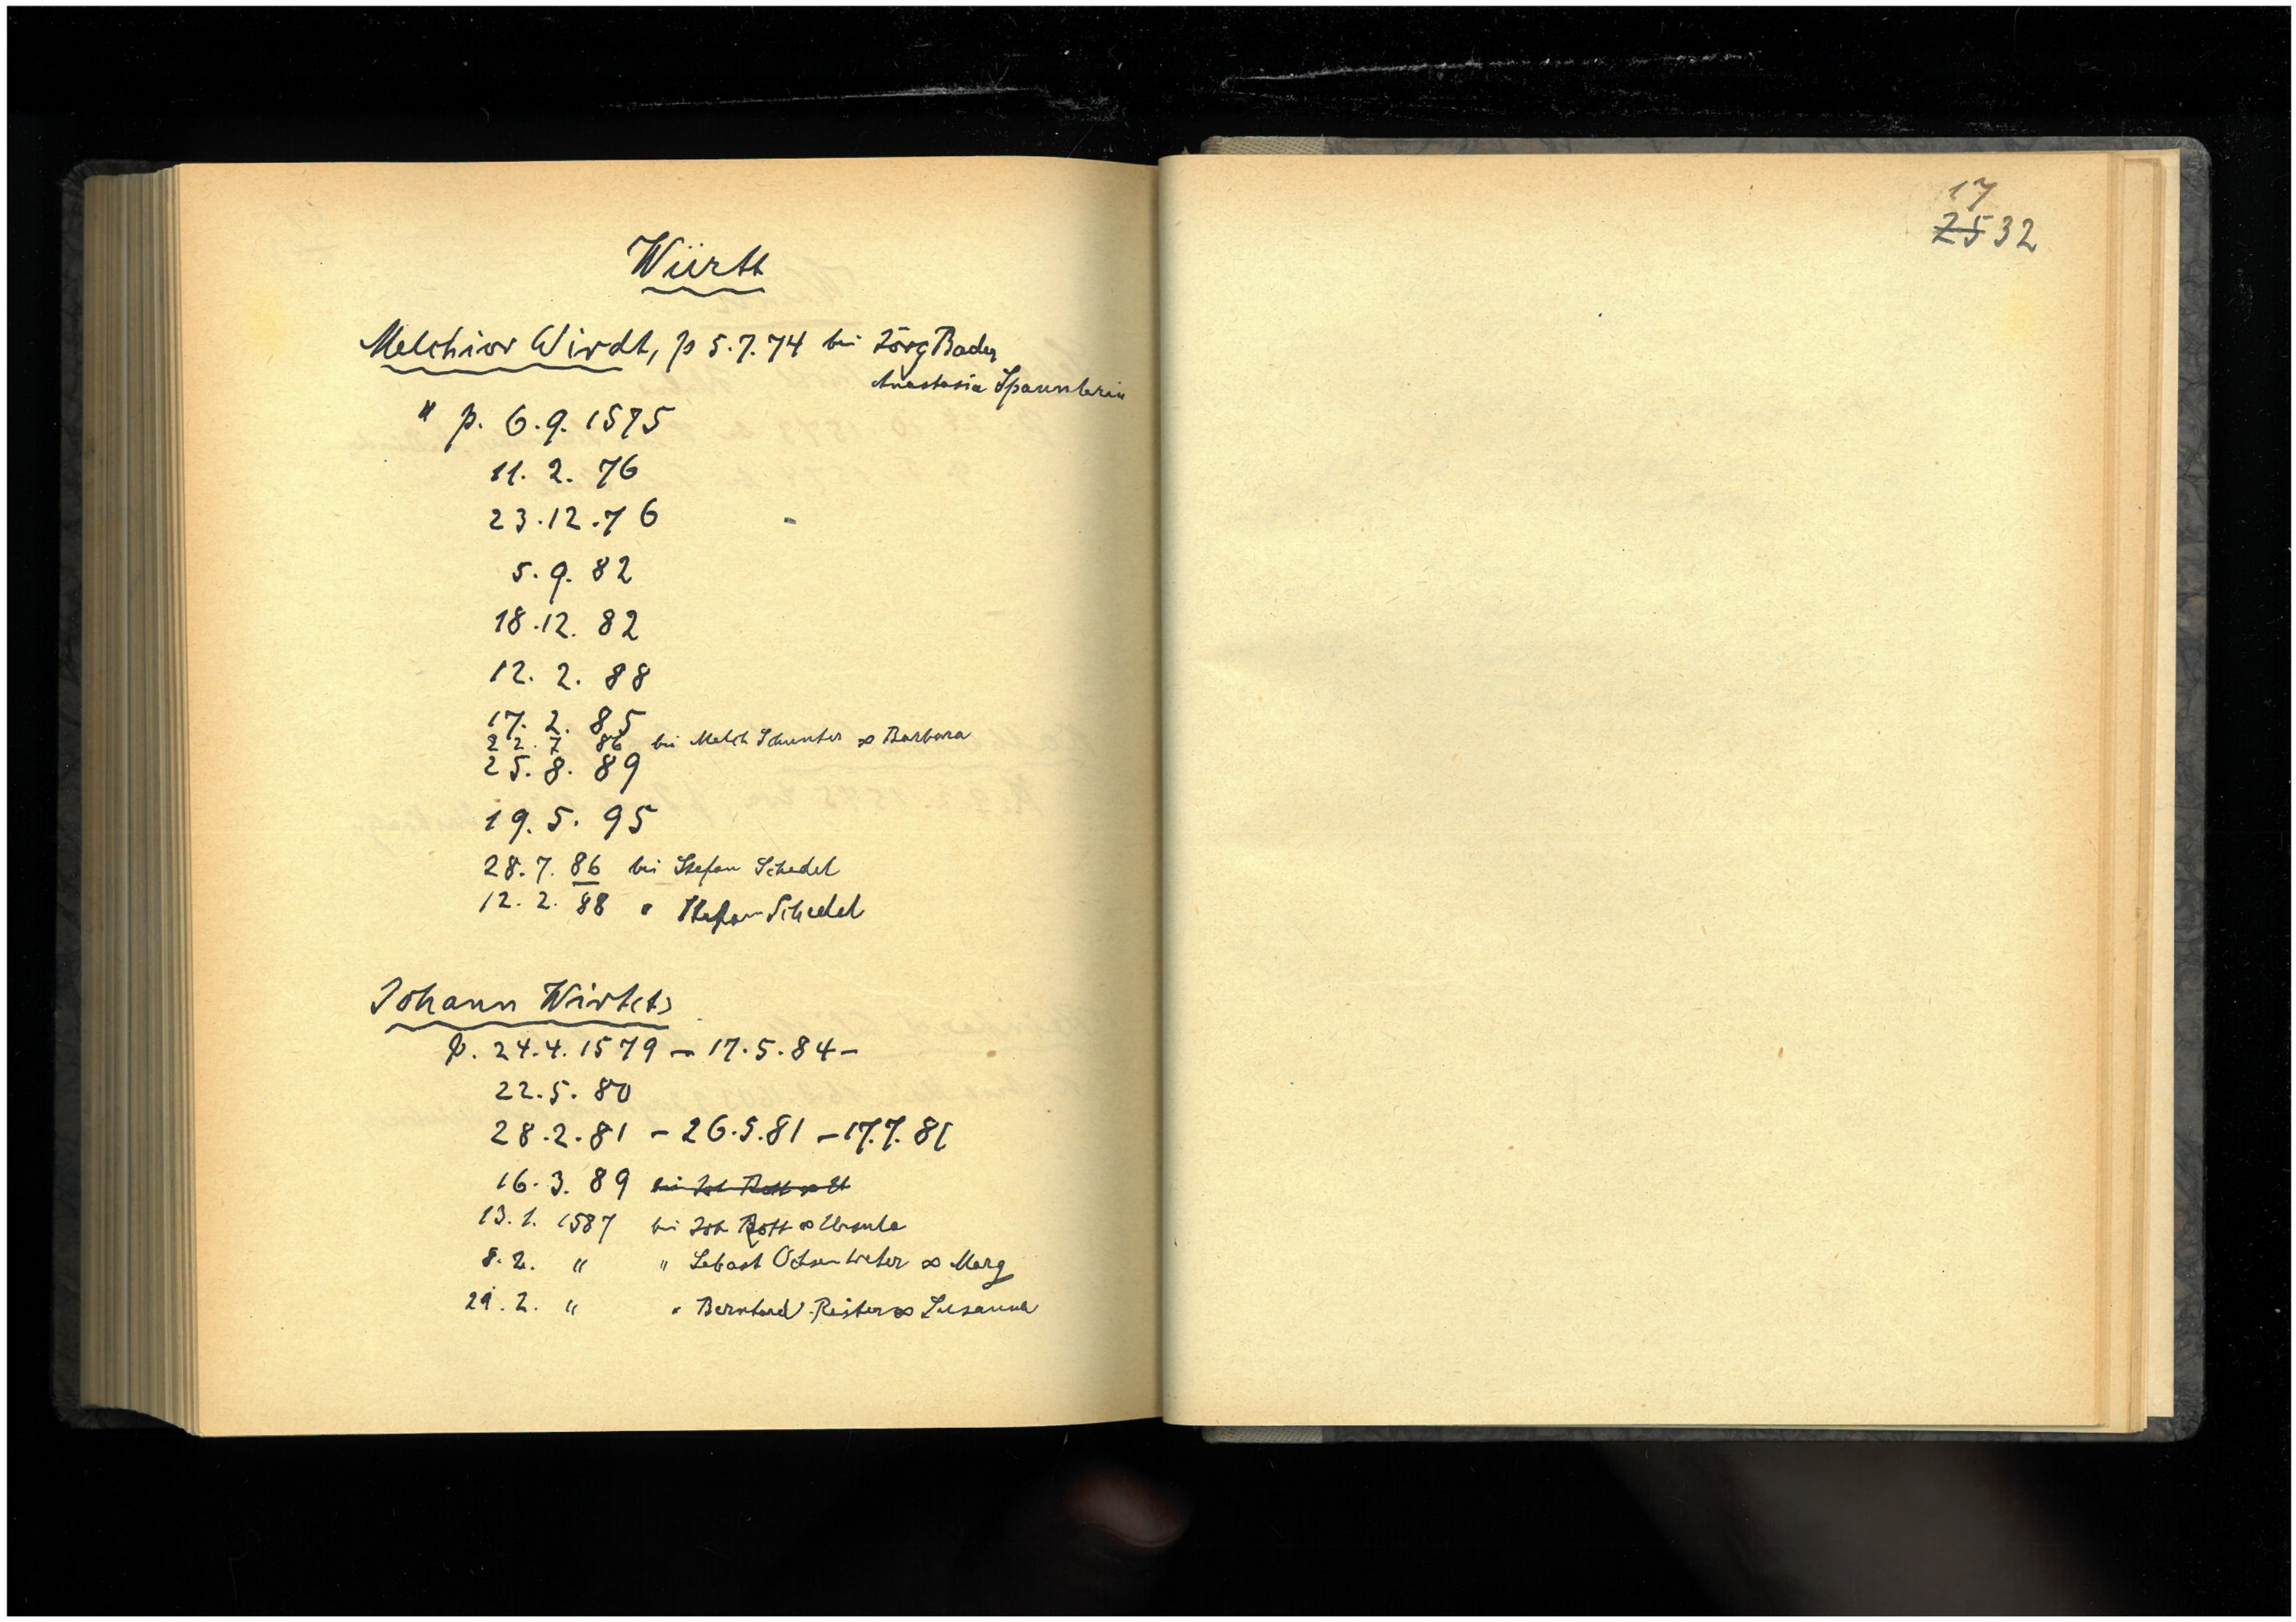 Württ
Melchior Wirdt, p 5.7.74 bei Jörg Bader
Anastasia Spannlerin
" p. 6.9.1575
11. 2. 76
23.12.76
5. 9. 82
18.12. 82
12. 2. 88
17. 2. 85
22. 7 86 bei Melch Schunter ∞ Barbara
25. 8. 89
19. 5. 95
28. 7. 86 bei Stefan Schedel
12. 2. 88 " Stefan Schedel
Johann Wirt(t)
p. 24.4.1579 – 17.5.84 –
22.5. 80
28.2.81 – 26.5.81 – 17.7.81
16.3. 89 bei Joh Rott
13.1. 1587 bei Joh Rott ∞ Ursula
8. 2. " " Sebast ∞ Marg
29. 2. " " Bernhard Reister ∞ Susanna
17
25 32